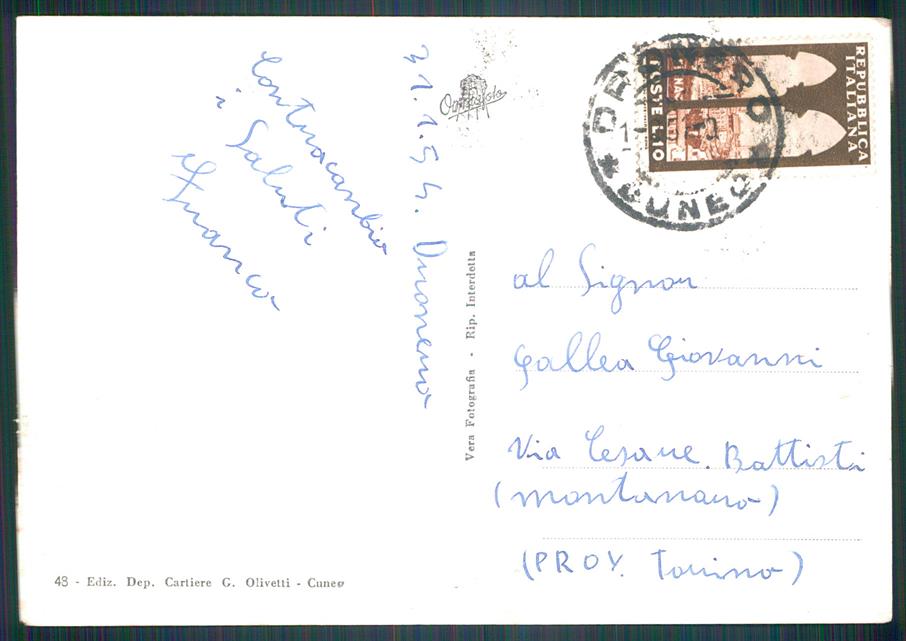 31.1.54. Dronero
Contraccambio
i Saluti
Franco
REPUBBLICA
ITALIANA
POSTE L.10
DRONERO
* CUNEO *
al Signor
Gallea Giovanni
Via Cesare Battisti
(Montanaro)
(PROV. Torino)
Vera Fotografia - Rip. Interdetta
48 - Ediz. Dep. Cartiere G. Olivetti - Cuneo